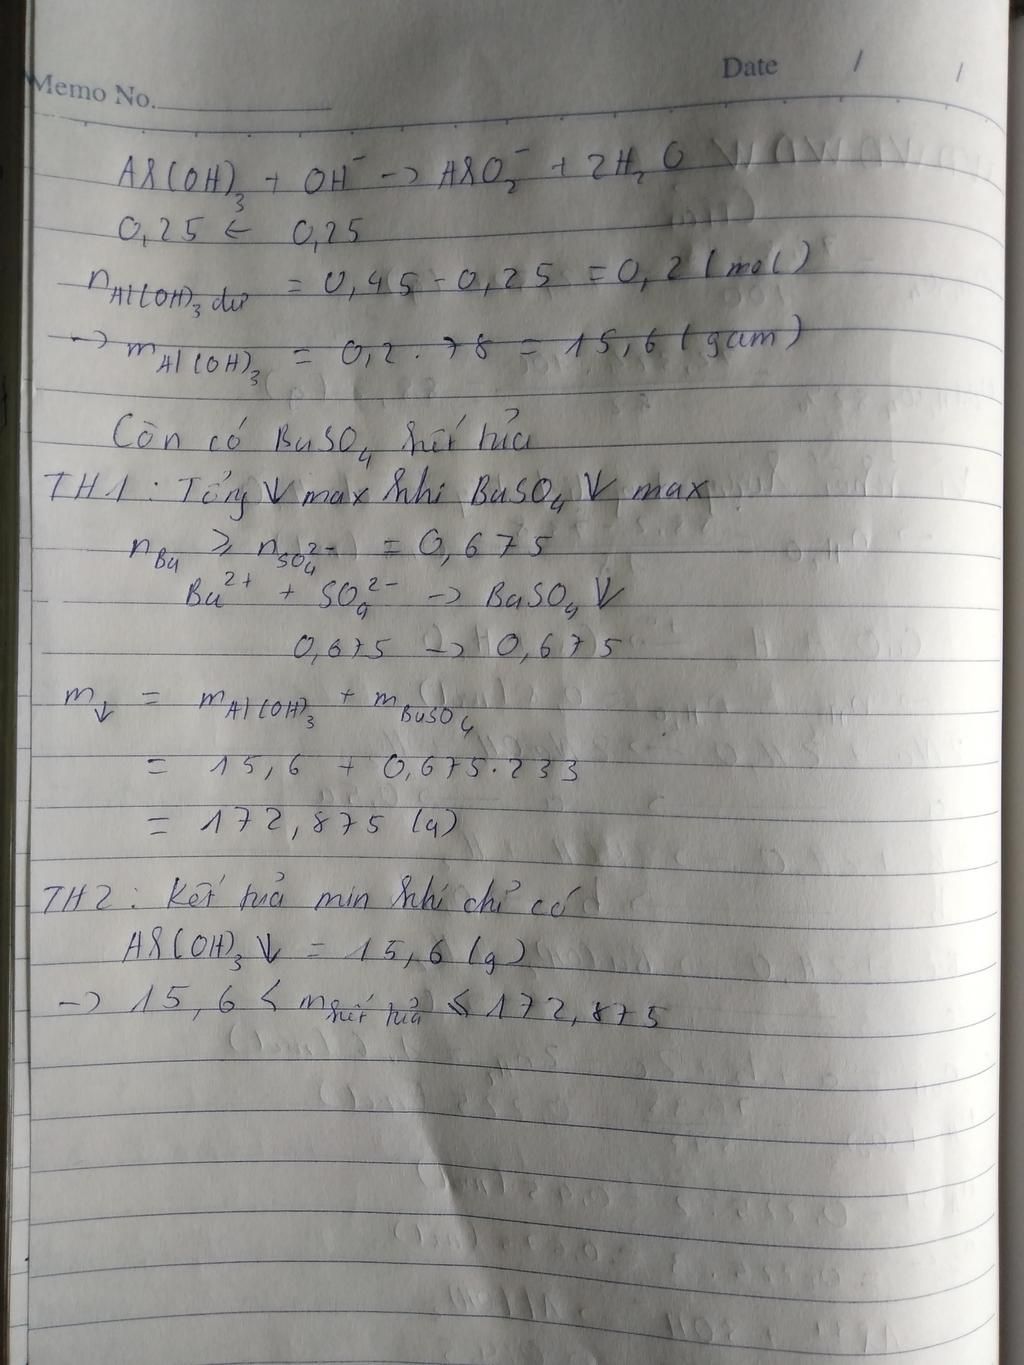 Memo No.
Date / /
Al(OH)₃ + OH⁻ -> AlO₂⁻ + 2H₂O
0,25 ← 0,25
nAl(OH)₃ dư = 0,45 - 0,25 = 0,2 (mol)
-> mAl(OH)₃ = 0,2 . 78 = 15,6 (gam)
Còn có BaSO₄ kết tủa
TH1: Tổng ↓ max khi BaSO₄ ↓ max
nBa ≥ nSO₄²⁻ = 0,675
Ba²⁺ + SO₄²⁻ -> BaSO₄ ↓
0,675 -> 0,675
m↓ = mAl(OH)₃ + mBaSO₄
= 15,6 + 0,675.233
= 172,875 (g)
TH2: Kết tủa min khi chỉ có
Al(OH)₃ ↓ = 15,6 (g)
-> 15,6 < mkết tủa ≤ 172,875